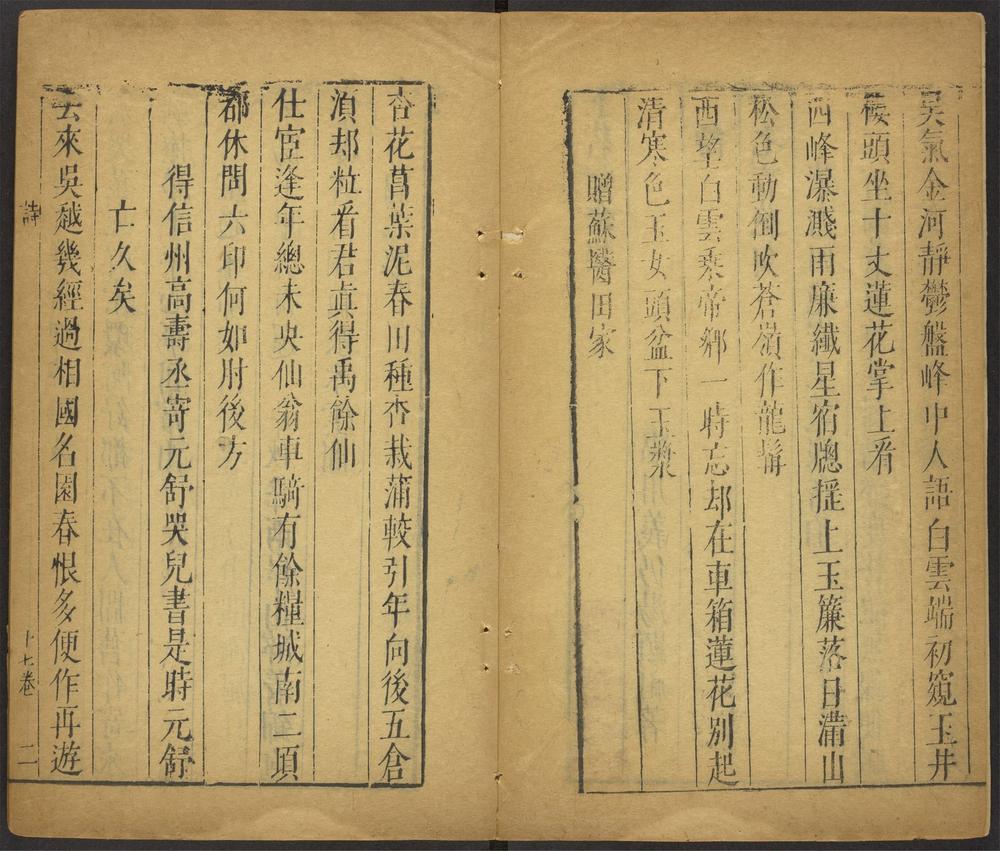 昊氣金河靜鬱盤峰中人語白雲端初窺玉井
樓頭坐十丈蓮花掌上看
西峰瀑濺雨廉纖星宿牕摇上玉簾落日滿山
松色動倒吹蒼嶺作龍髯
西望白雲乘帝鄉一時忘却在車箱蓮花別起
清寒色玉女頭盆下玉漿
贈蘇醫田家
杏花菖葉泥春田種杏栽蒲較引年向後五倉
湏却粒看君眞得禹餘仙
仕宦逢年總未央仙翁車騎有餘糧城南二頃
都休問六印何如肘後方
得信州高壽丞寄元舒哭兒書是時元舒
亡久矣
去來吳越幾經過相國名園春恨多便作再遊
詩
十七卷
二